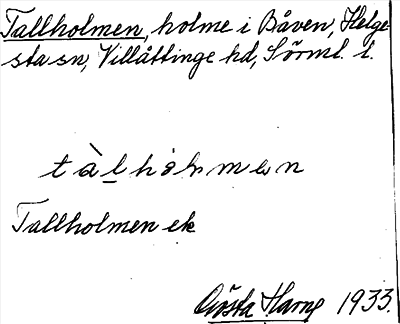 Tallholmen, holme i Båven, Helge-
sta sn, Villåttinge hd, Sörml. l.
tàl̲hòlmen
Tallholmen ek
Gösta Harne 1933.